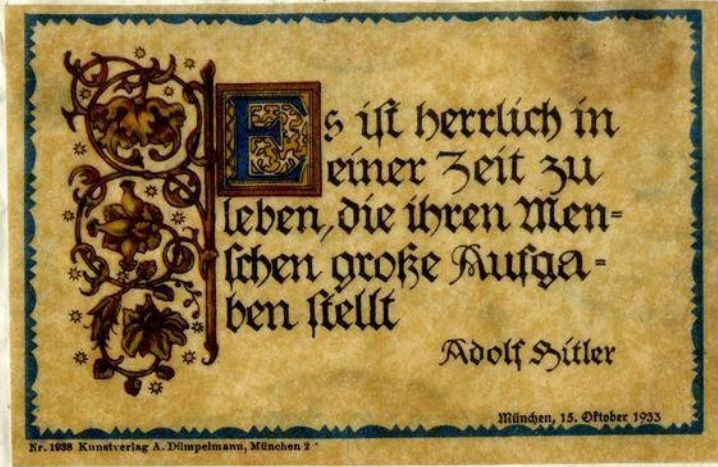 Es ist herrlich in
einer Zeit zu
leben, die ihren Men=
schen große Aufga=
ben stellt
Adolf Hitler
München, 15. Oktober 1933
Nr. 1938 Kunstverlag A. Dümpelmann, München 2